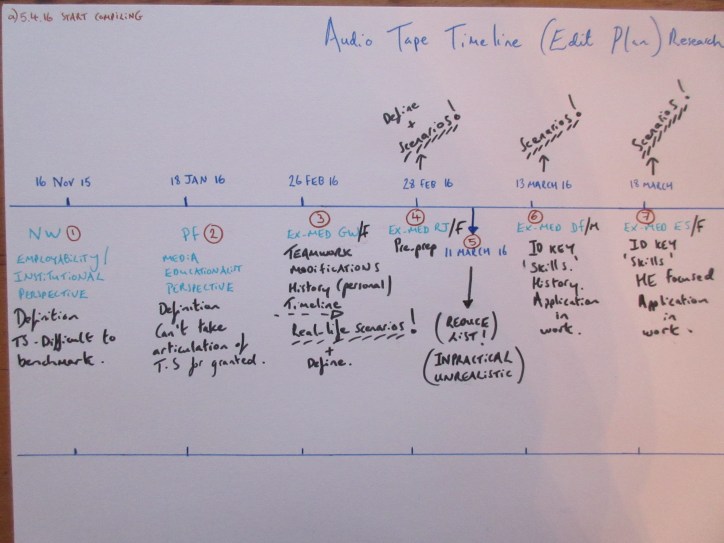 a) 5.4.16 START COMPILING
Audio Tape Timeline (Edit Plan) Research
Define
+
Scenarios!
Scenarios!
Scenarios!
16 NOV 15
18 JAN 16
26 FEB 16
28 FEB 16
13 MARCH 16
18 MARCH
NW 1
EMPLOYABILITY/
INSTITUTIONAL
PERSPECTIVE
Definition
TS - Difficult to
benchmark.
PF 2
MEDIA
EDUCATIONALIST
PERSPECTIVE
Definition
Can't take
articulation of
T.S for granted.
3
EX-MED GW/F
TEAMWORK
MODIFICATIONS
History (personal)
Timeline
Real life scenarios!
+
Define.
4
EX-MED RJ/F
Pre-prep
5
11 MARCH 16
(REDUCE
LIST!)
(INPRACTICAL
UNREALISTIC)
6
EX-MED DF/M
ID KEY
'Skills.'
History.
Application
in
work.
7
EX-MED ES/F
ID KEY
'Skills'
HE FOCUSED
Application
in
work.